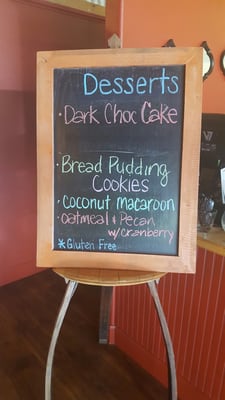 Desserts
· Dark Choc Cake
· Bread Pudding
Cookies
· Coconut Macaroon
· Oatmeal & Pecan
w/ Cranberry
* Gluten Free